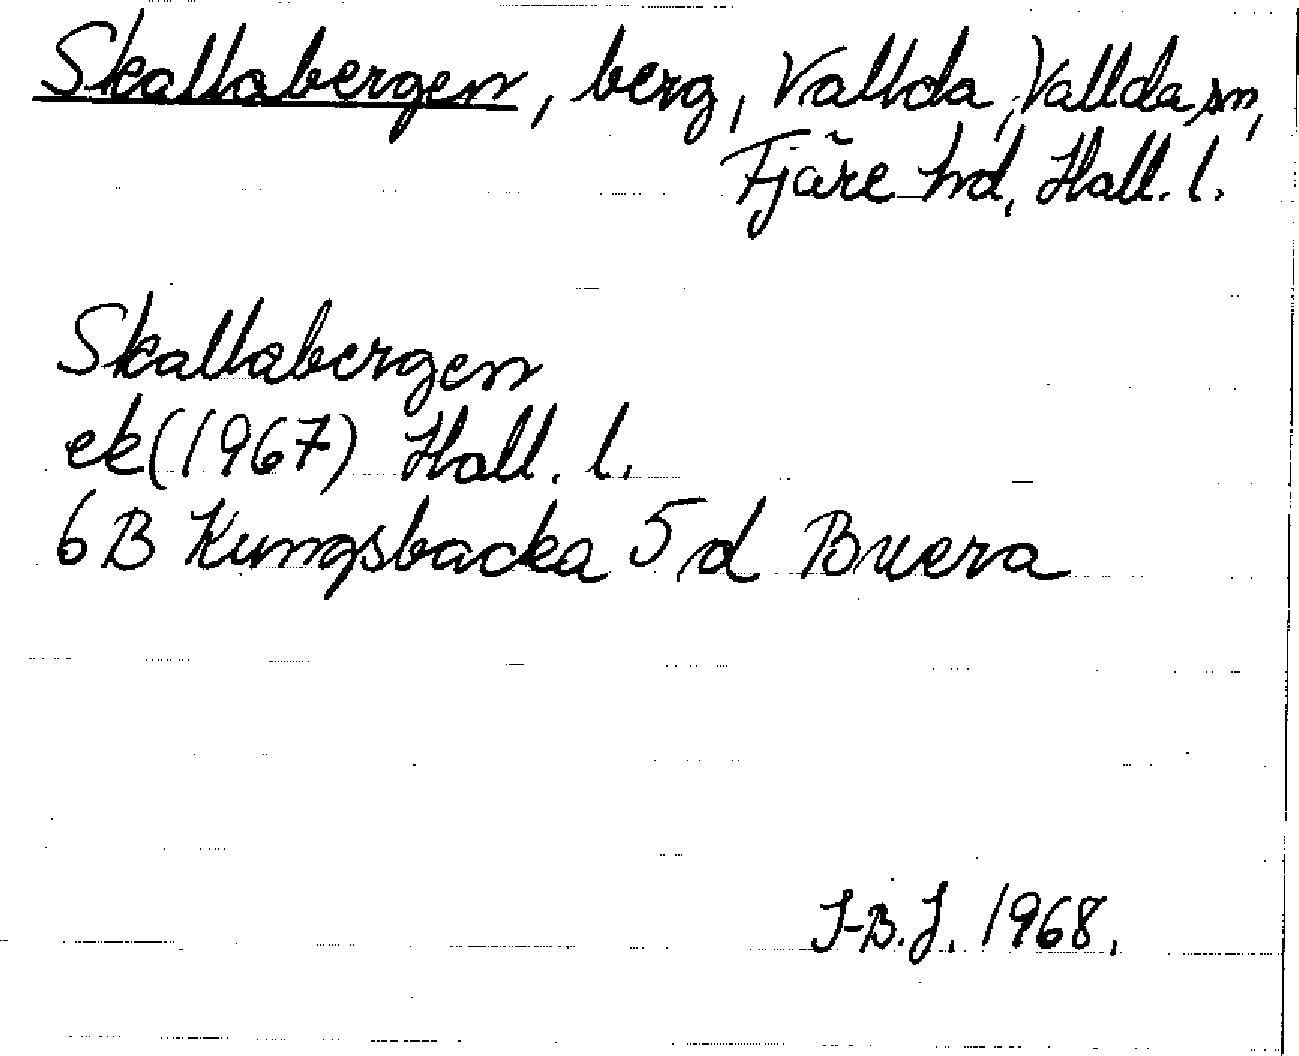 Skallabergen, berg, Vallda, Vallda sn,
Fjäre hd, Hall. l.
Skallabergen
ek (1967) Hall. l.
6 B Kungsbacka 5 d Buera
I-B.J. 1968.